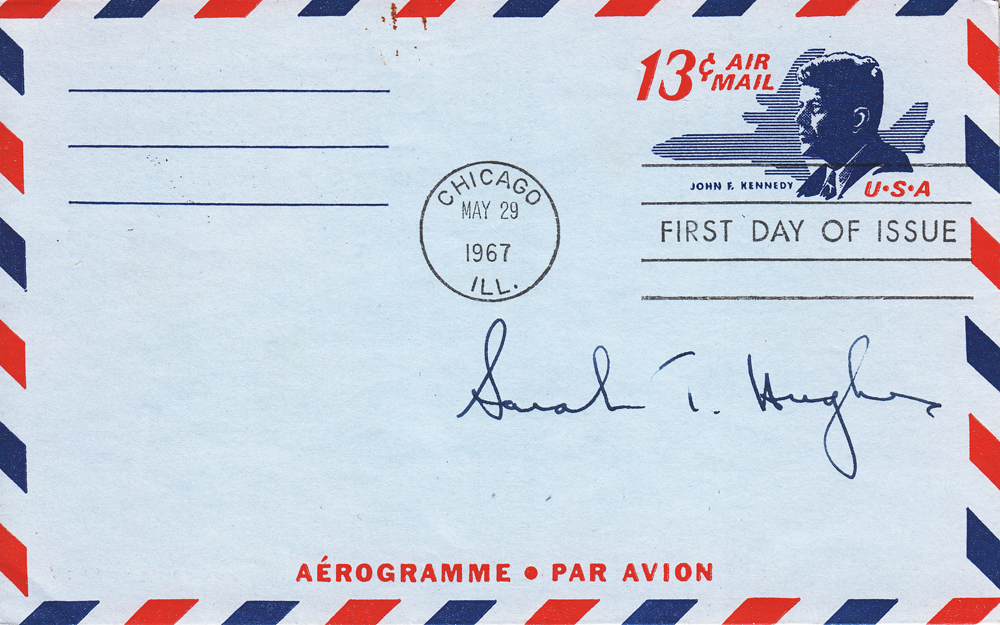 13¢ AIR MAIL
JOHN F. KENNEDY
U•S•A
CHICAGO
MAY 29
1967
ILL.
FIRST DAY OF ISSUE
Sarah T. Hughes
AÉROGRAMME • PAR AVION